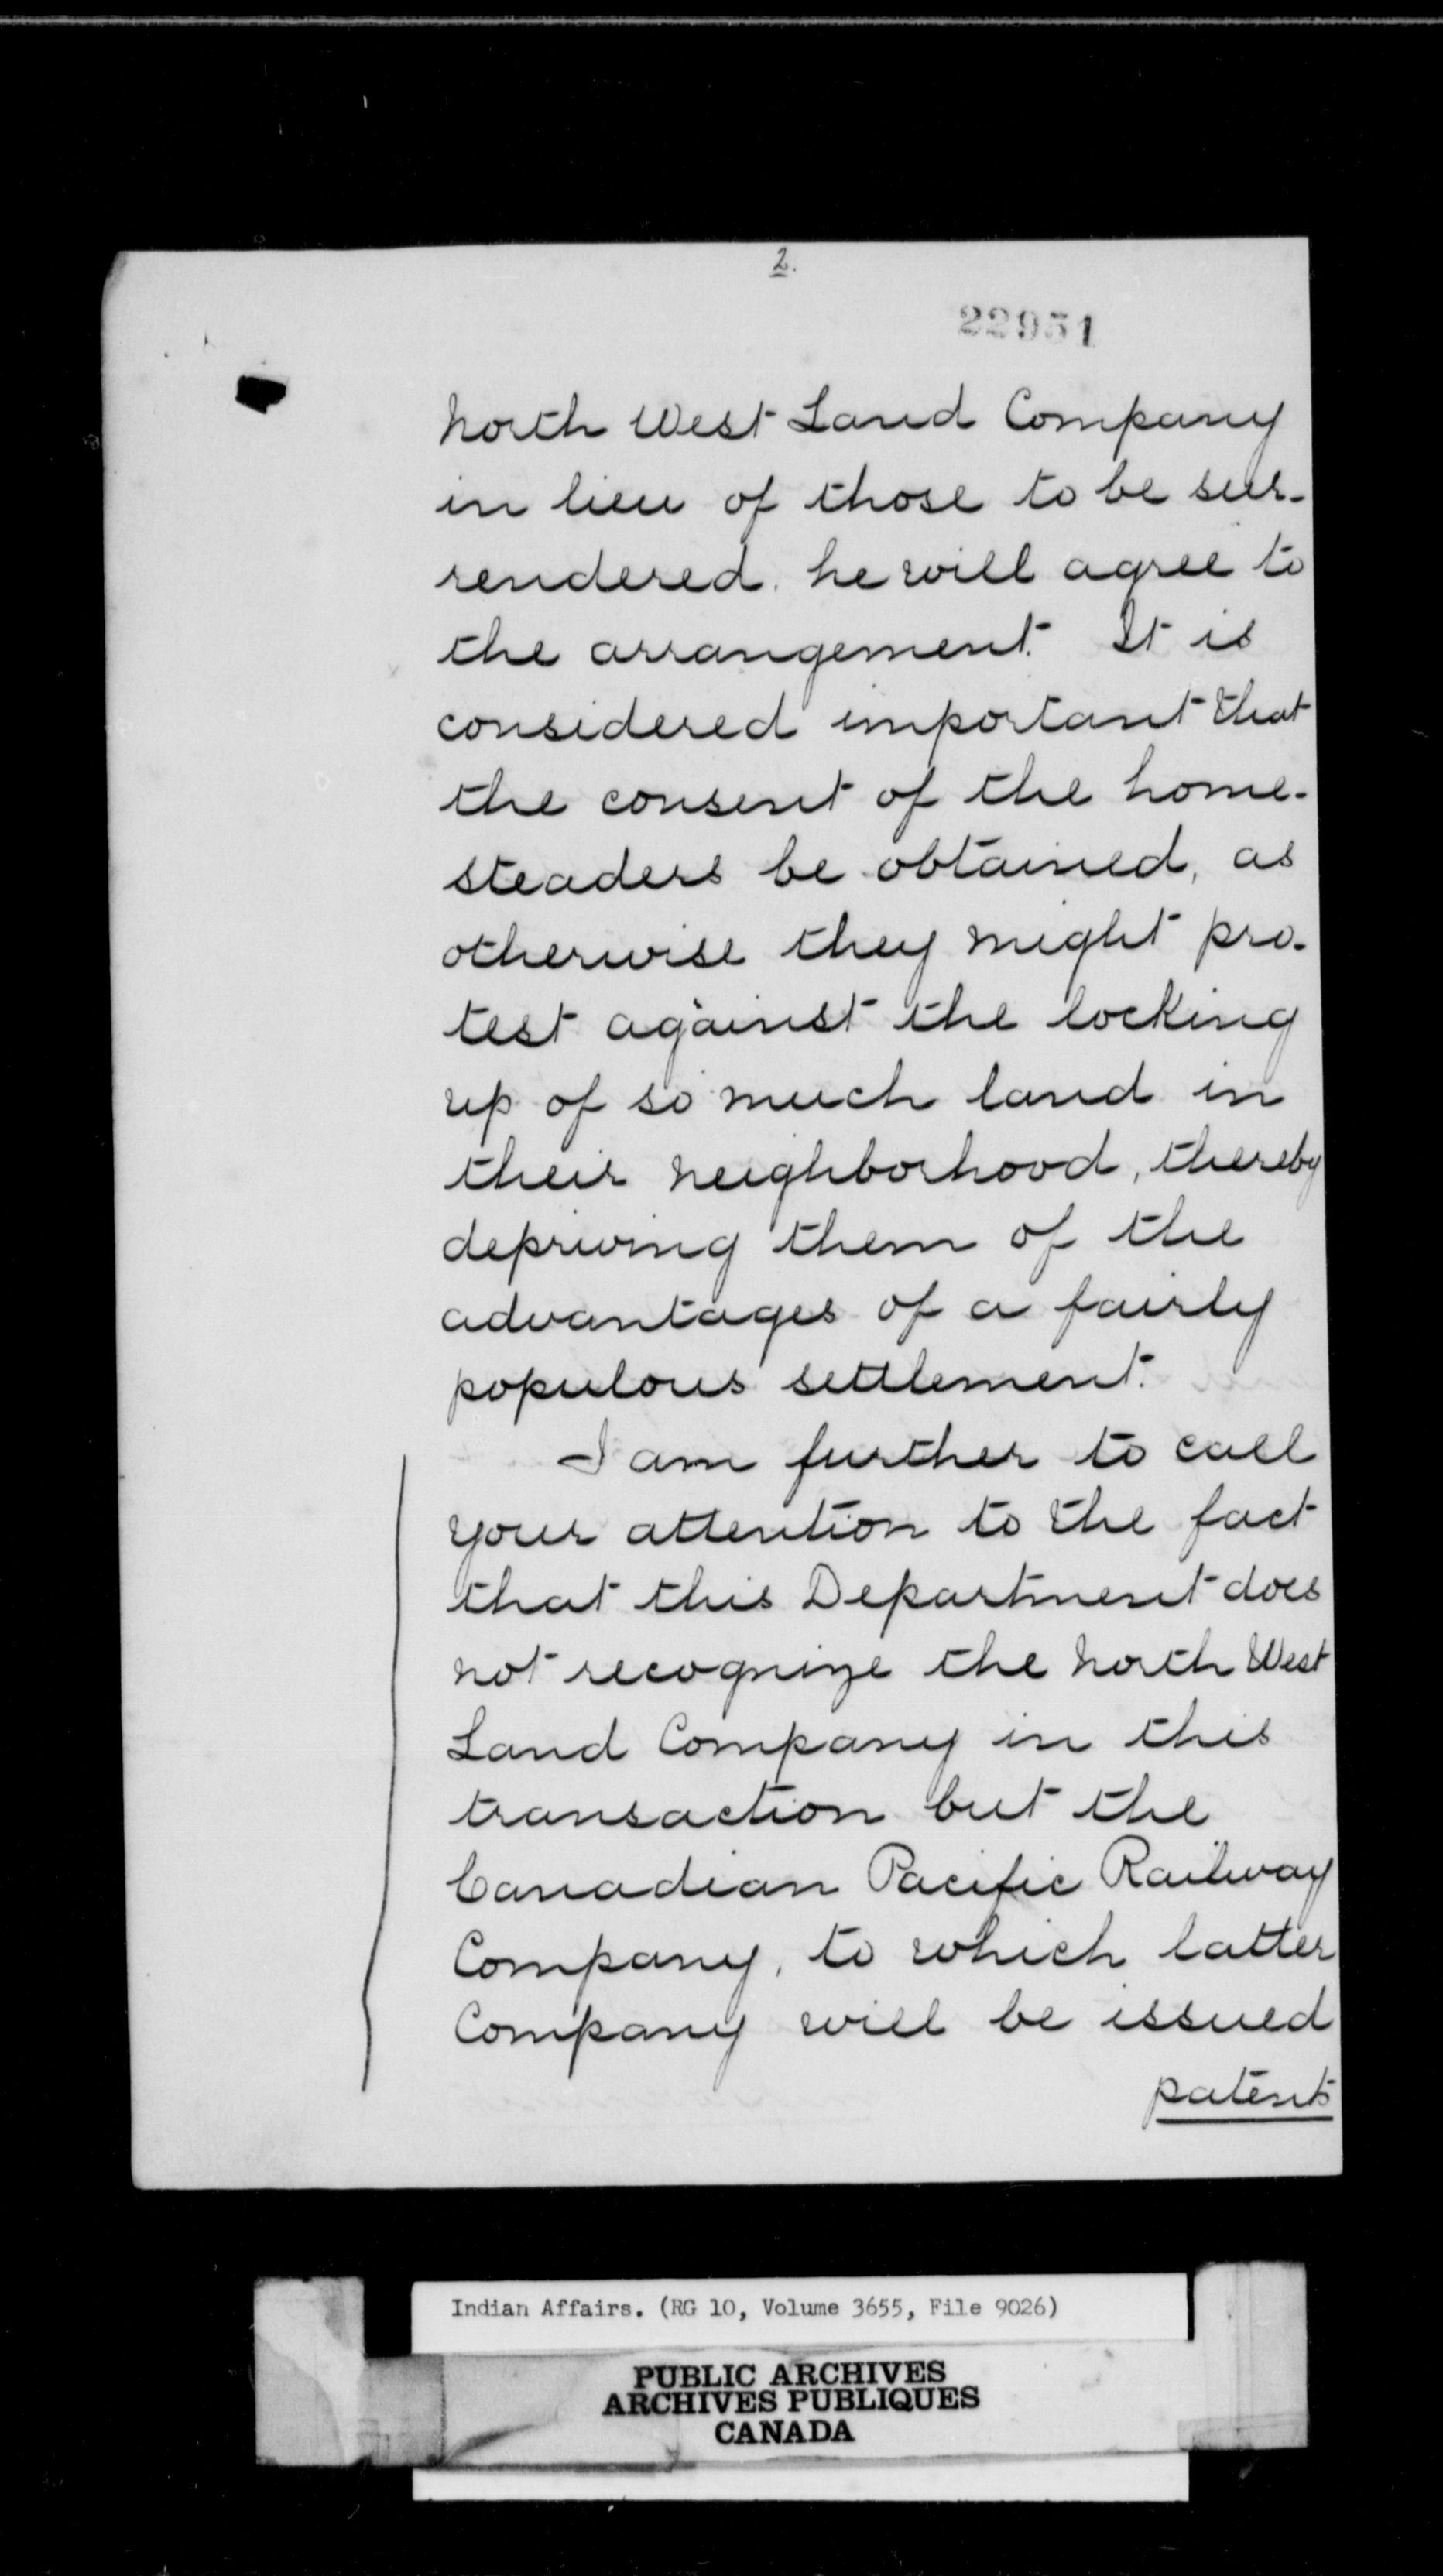 2.
22951
North West Land Company
in lieu of those to be sur-
rendered. he will agree to
the arrangement. It is
considered important that
the consent of the home-
steaders be obtained, as
otherwise they might pro-
test against the locking
up of so much land in
their neighborhood, thereby
depriving them of the
advantages of a fairly
populous settlement.
I am further to call
your attention to the fact
that this Department does
not recognize the North West
Land Company in this
transaction but the
Canadian Pacific Railway
Company, to which latter
Company will be issued
patents
Indian Affairs. (RG 10, Volume 3655, File 9026)
PUBLIC ARCHIVES
ARCHIVES PUBLIQUES
CANADA